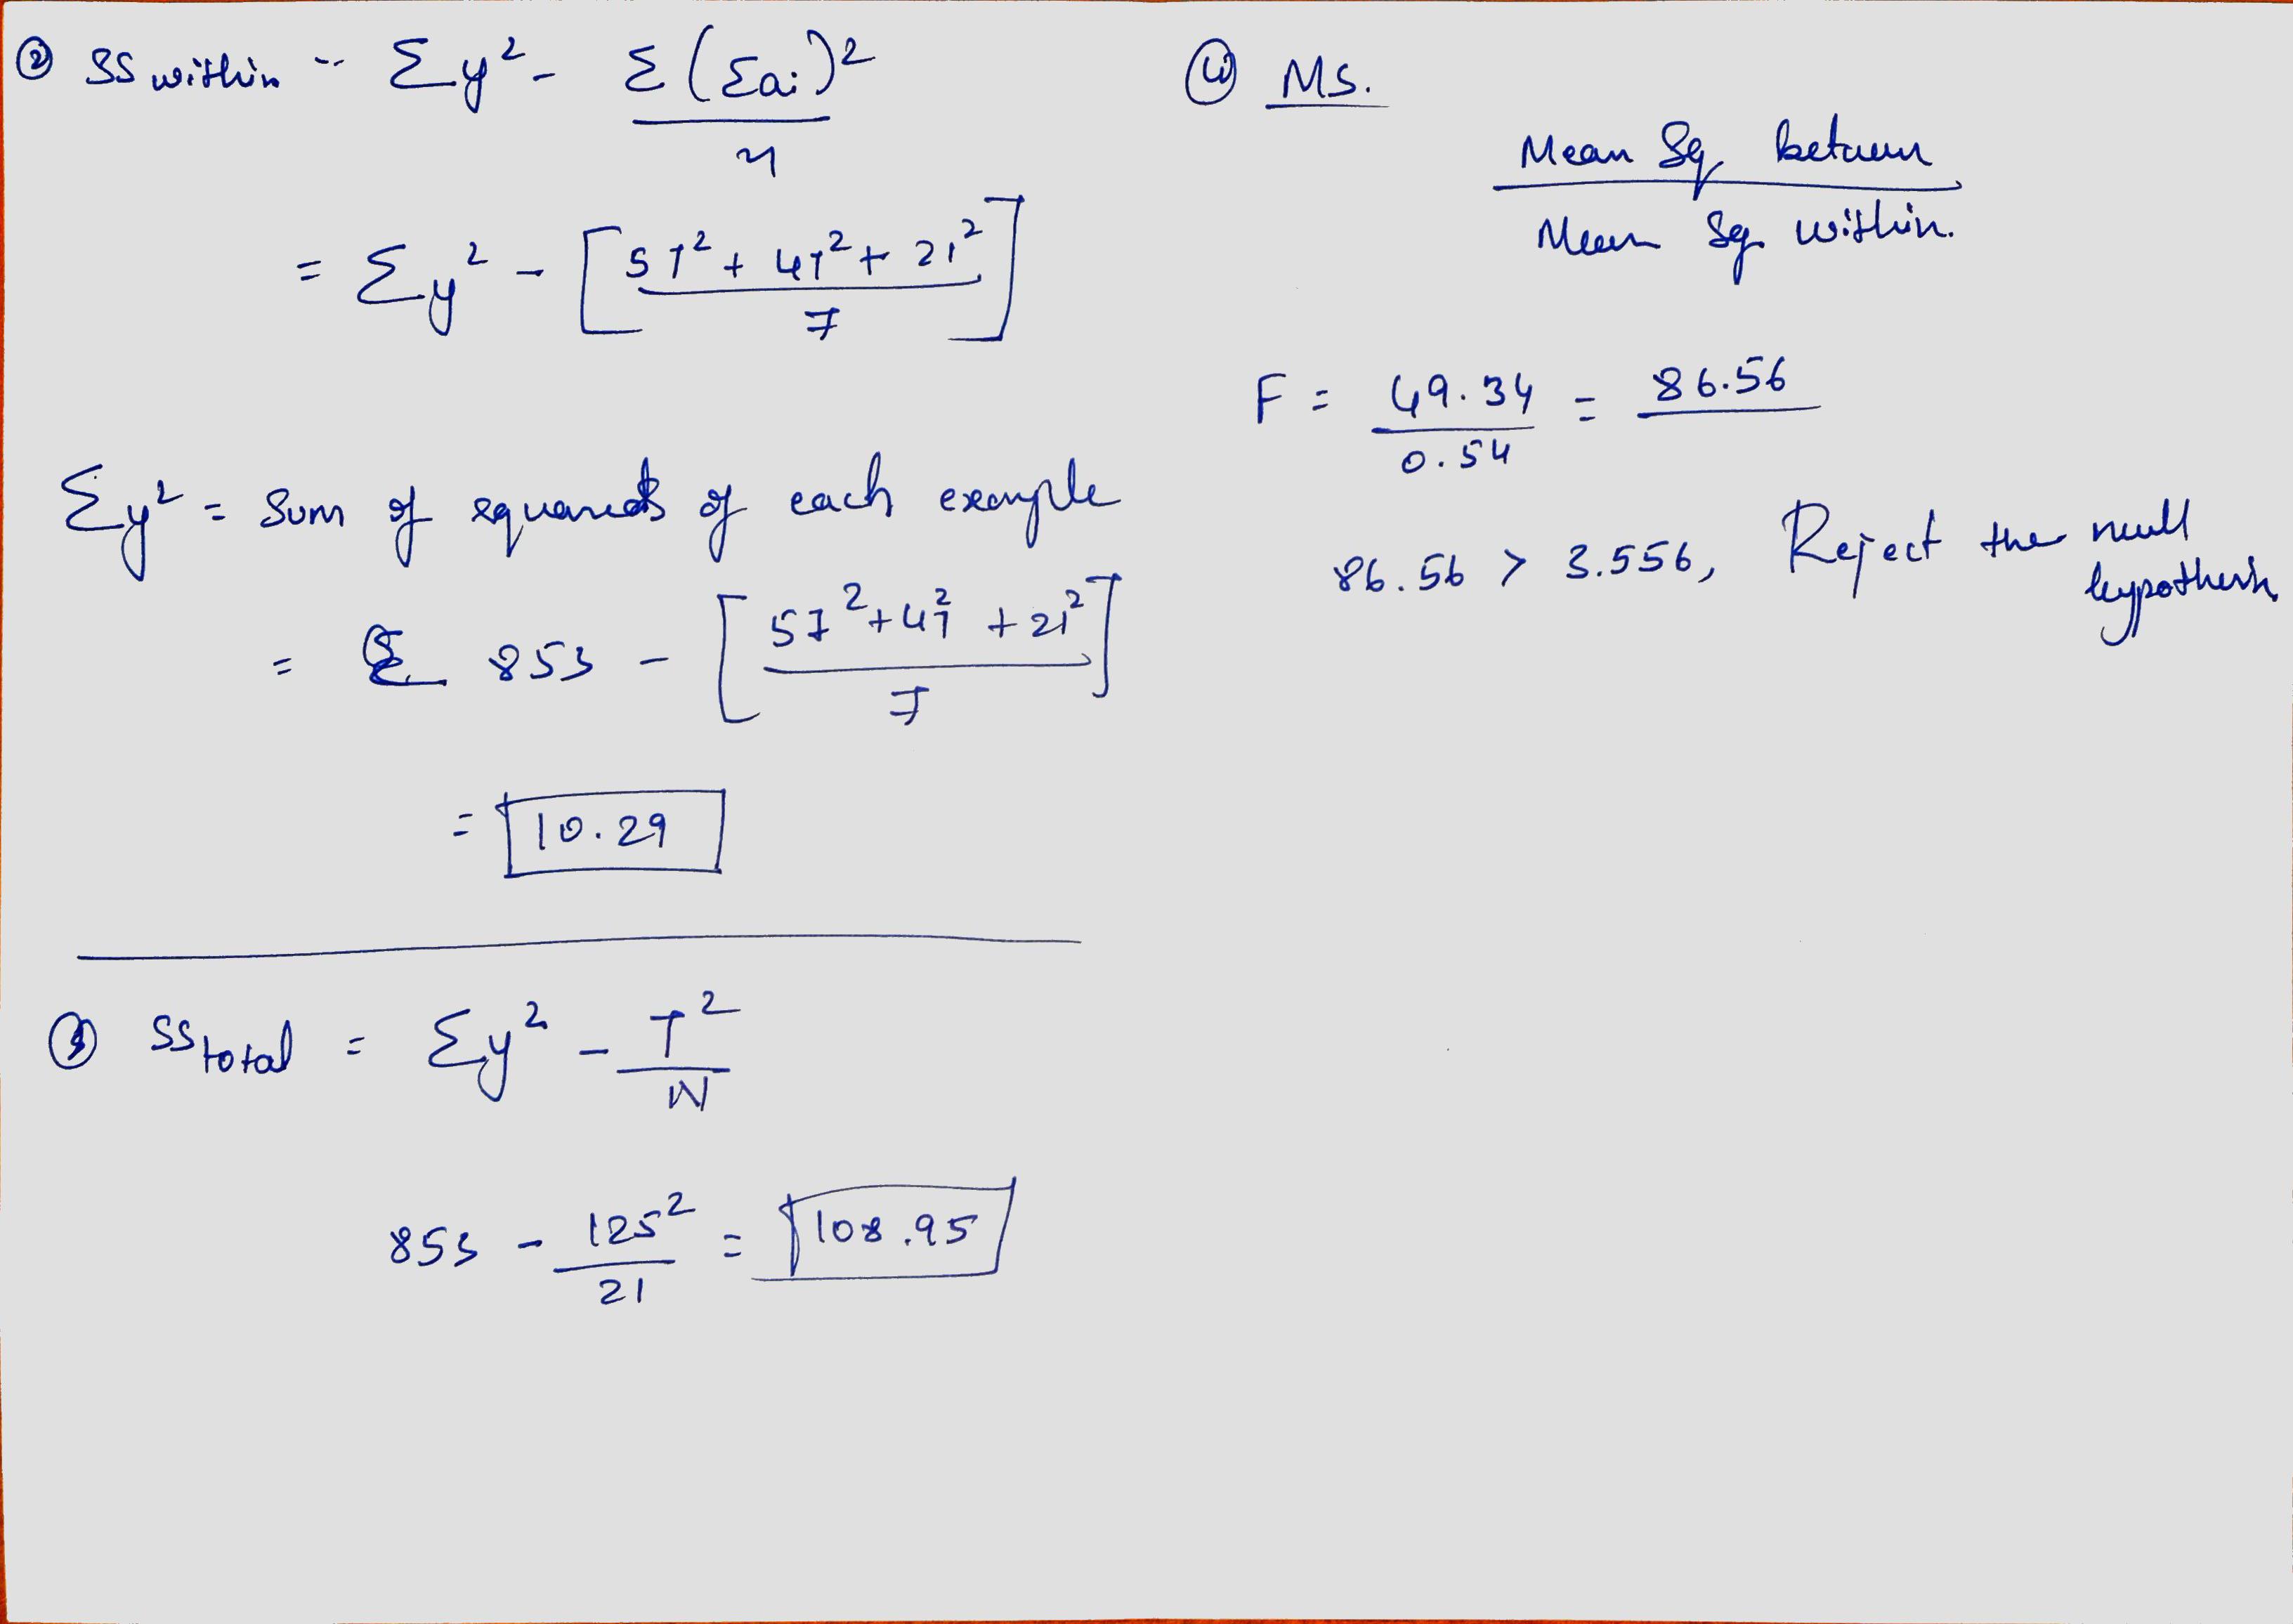 ② SS within -- Σy² - Σ(Σai)²
n
= Σy² - [57² + 47² + 21²]
7
Σy² = Sum of squares of each example
= 853 - [57² + 47² + 21²]
7
= 10.29
③ SS total = Σy² - T²
N
853 - 125² = 108.95
21
④ MS.
Mean Sq. between
Mean Sq. within.
F = 49.34 = 86.56
0.54
86.56 > 3.556, Reject the null
hypothesis.